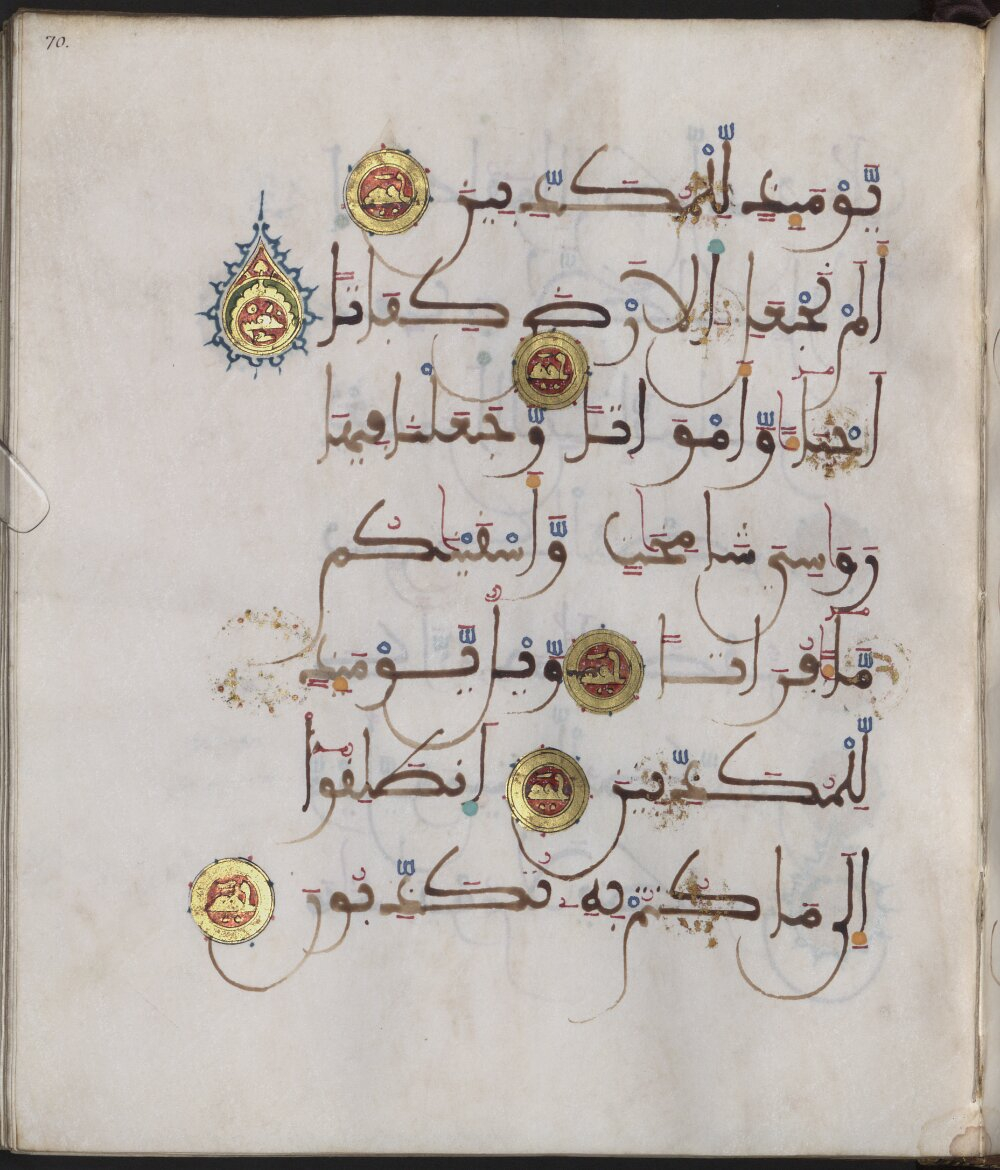 70.
يَّوْمَئِذٍ لِّلْمُكَذِّبِينَ
أَلَمْ نَجْعَلِ الْأَرْضَ كِفَاتًا
أَحْيَاءً وَّأَمْوَاتًا وَّجَعَلْنَا فِيهَا
رَوَاسِيَ شَامِخَاتٍ وَّأَسْقَيْنَاكُم
مَّاءً فُرَاتًا وَّيْلٌ يَّوْمَئِذٍ
لِّلْمُكَذِّبِينَ انطَلِقُوا
إِلَى مَا كُنتُمْ بِهِ تُكَذِّبُونَ